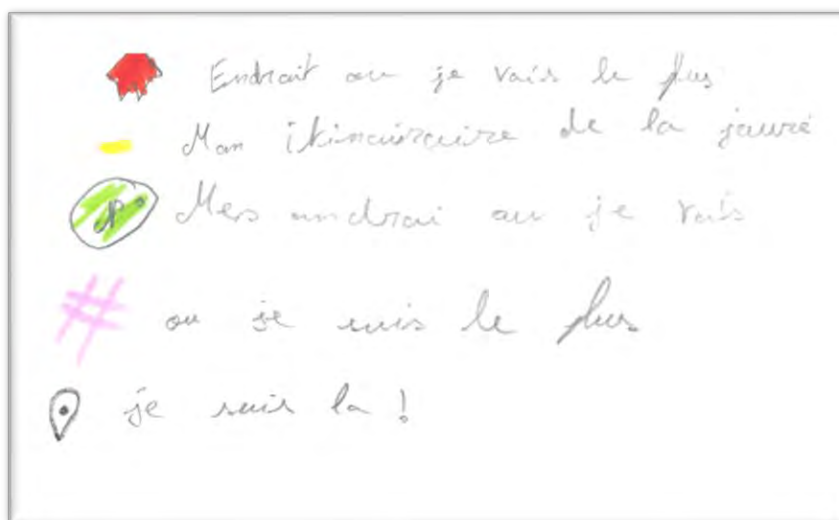 Endrait ou je vais le plus
Mon itinairaire de la jauré
N° Mes andrai ou je vais
# ou je suis le plus
je suis la !